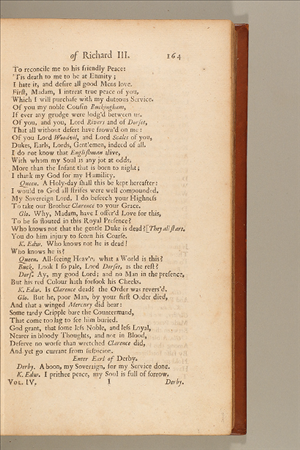 of Richard III. 164
To reconcile me to his friendly Peace:
'Tis death to me to be at Enmity;
I hate it, and desire all good Mens love.
First, Madam, I intreat true peace of you,
Which I will purchase with my duteous Service.
Of you my noble Cousin Buckingham,
If ever any grudge were lodg'd between us.
Of you, and you, Lord Rivers and of Dorset,
That all without desert have frown'd on me:
Of you Lord Woodvil, and Lord Scales of you,
Dukes, Earls, Lords, Gentlemen, indeed of all.
I do not know that Englishman alive,
With whom my Soul is any jot at odds,
More than the Infant that is born to night;
I thank my God for my Humility.
Queen. A Holy-day shall this be kept hereafter:
I would to God all strifes were well compounded.
My Sovereign Lord, I do beseech your Highness
To take our Brother Clarence to your Grace.
Glo. Why, Madam, have I offer'd Love for this,
To be so flouted in this Royal Presence?
Who knows not that the gentle Duke is dead? [They all start.
You do him injury to scorn his Coarse.
K. Edw. Who knows not he is dead!
Who knows he is?
Queen. All-seeing Heav'n, what a World is this?
Buck. Look I so pale, Lord Dorset, as the rest?
Dors. Ay, my good Lord; and no Man in the presence,
But his red Colour hath forsook his Cheeks.
K. Edw. Is Clarence dead? the Order was revers'd.
Glo. But he, poor Man, by your first Order died,
And that a winged Mercury did bear:
Some tardy Cripple bare the Countermand,
That come too lag to see him buried.
God grant, that some less Noble, and less Loyal,
Nearer in bloody Thoughts, and not in Blood,
Deserve no worse than wretched Clarence did,
And yet go currant from suspicion.
Enter Earl of Derby.
Derby. A boon, my Sovereign, for my Service done.
K. Edw. I prithee peace, my Soul is full of sorrow.
VOL. IV. I Derby.